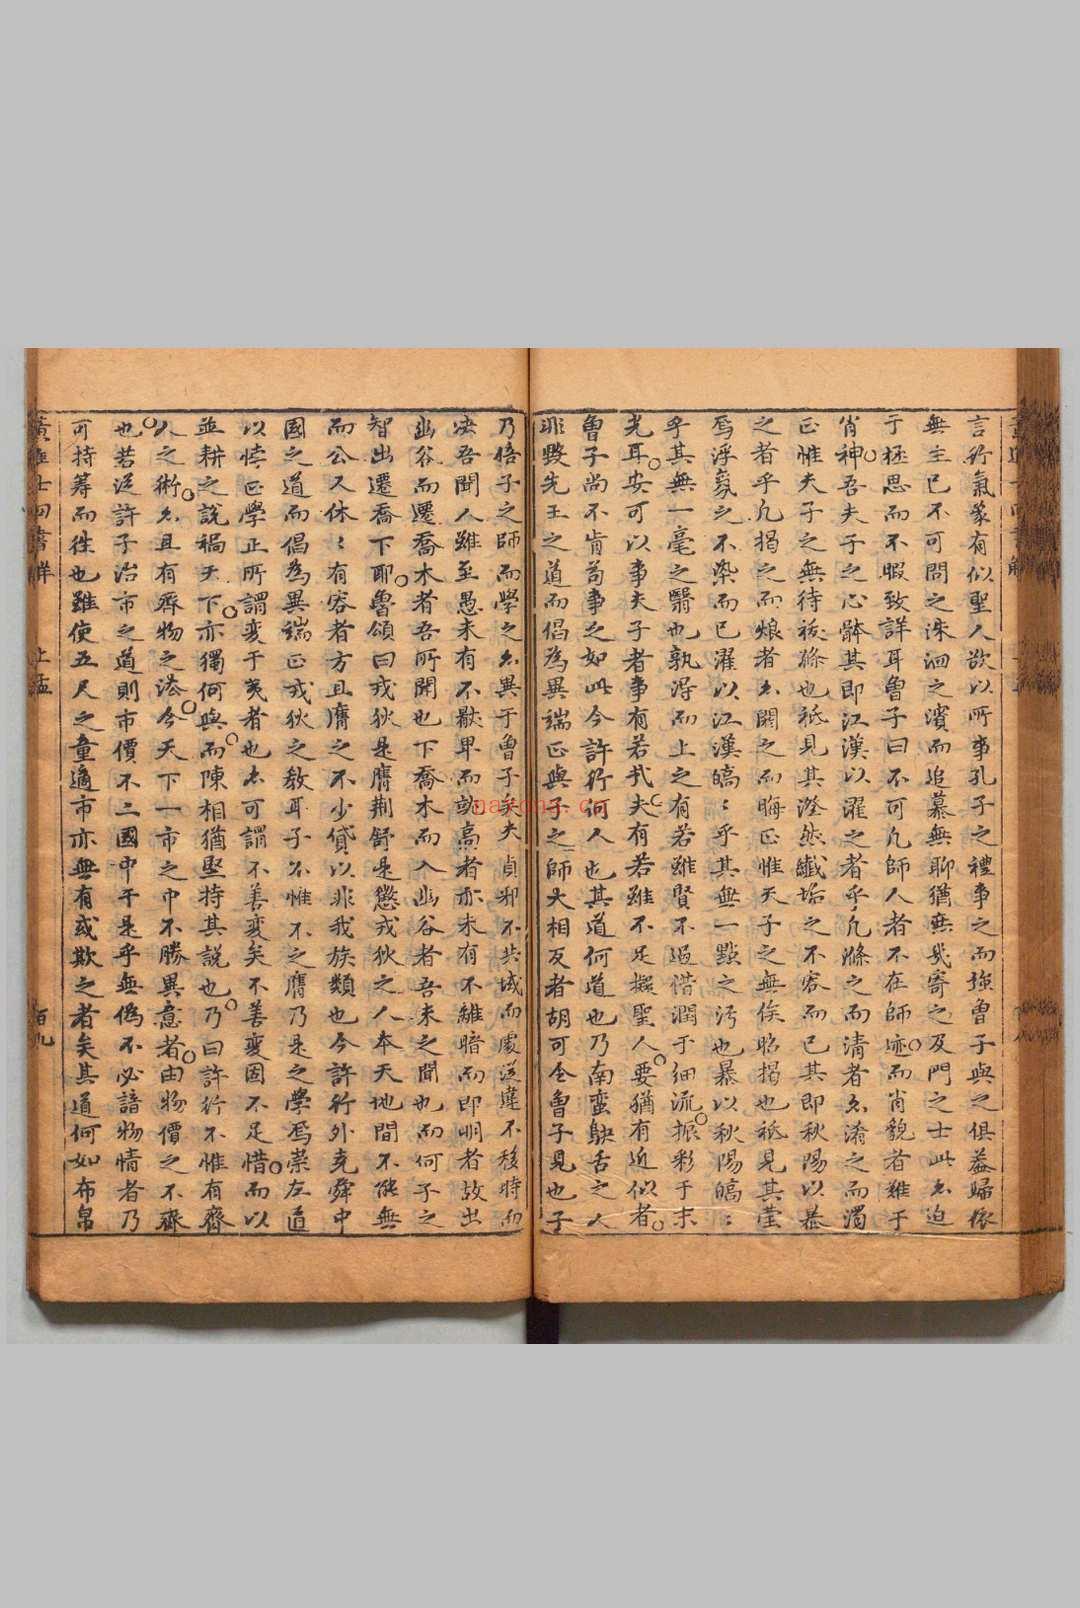 言行氣象有似聖人欲以所事孔子之禮事之而強魯子與之俱蓋歸依
無主已不可問之洙泗之濱而追慕無聊猶無幾寄之及門之士此亦迫
于極思而不暇致詳耳魯子曰不可凡師人者不在師迹而肖貌者難于
肖神吾夫子之心體其即江漢以濯之者乎凡滌之而清者亦淆之而濁
正惟夫子之無待祓滌也祗見其瀅然纖垢之不容而已其即秋陽以暴
之者乎凡揭之而烺者亦閟之而晦正惟夫子之無俟昭揭也祗見其瑩
焉浮氛之不染而已濯以江漢皜:乎其無一點之污也暴以秋陽皜:
乎其無一毫之翳也孰得而上之有若雖賢不過借潤于細流振彩于末
光耳安可以事夫子者事有若哉夫有若雖不足擬聖人要猶有近似者
魯子尚不肯苟事之如此今許行何人也其道何道也乃南蠻鴃舌之人
非毀先王之道而倡為異端正與子之師大相反者胡可令魯子見也子
乃倍子之師而學之亦異于魯子矣夫貞邪不共域而處從違不移時而
決吾聞人雖至愚未有不厭卑而就高者亦未有不離暗而即明者故出
幽谷而遷喬木者吾所聞也下喬木而入幽谷者吾未之聞也而何子之
智出遷喬下耶魯頌曰戎狄是膺荊舒是懲戎狄之人本天地間不能無
而公又休:有容者方且膺之不少貸以非我族類也今許行外堯舜中
國之道而倡為異端正戎狄之教耳子不惟不之膺乃是之學焉崇左道
以悖正學正所謂変于夷者也亦可謂不善変矣不善変固不足惜而以
並耕之說禍天下亦獨何與而陳相猶堅持其說也乃曰許行不惟有齊
人之術亦且有齊物之法今天下一市之中不勝異意者由物價之不齊
也若從許子治市之道則市價不二國中于是乎無偽不必諳物情者乃
可持筹而徃也雖使五尺之童適市亦無有或欺之者矣其道何如布帛
黃進士四書詳
上孟
百九